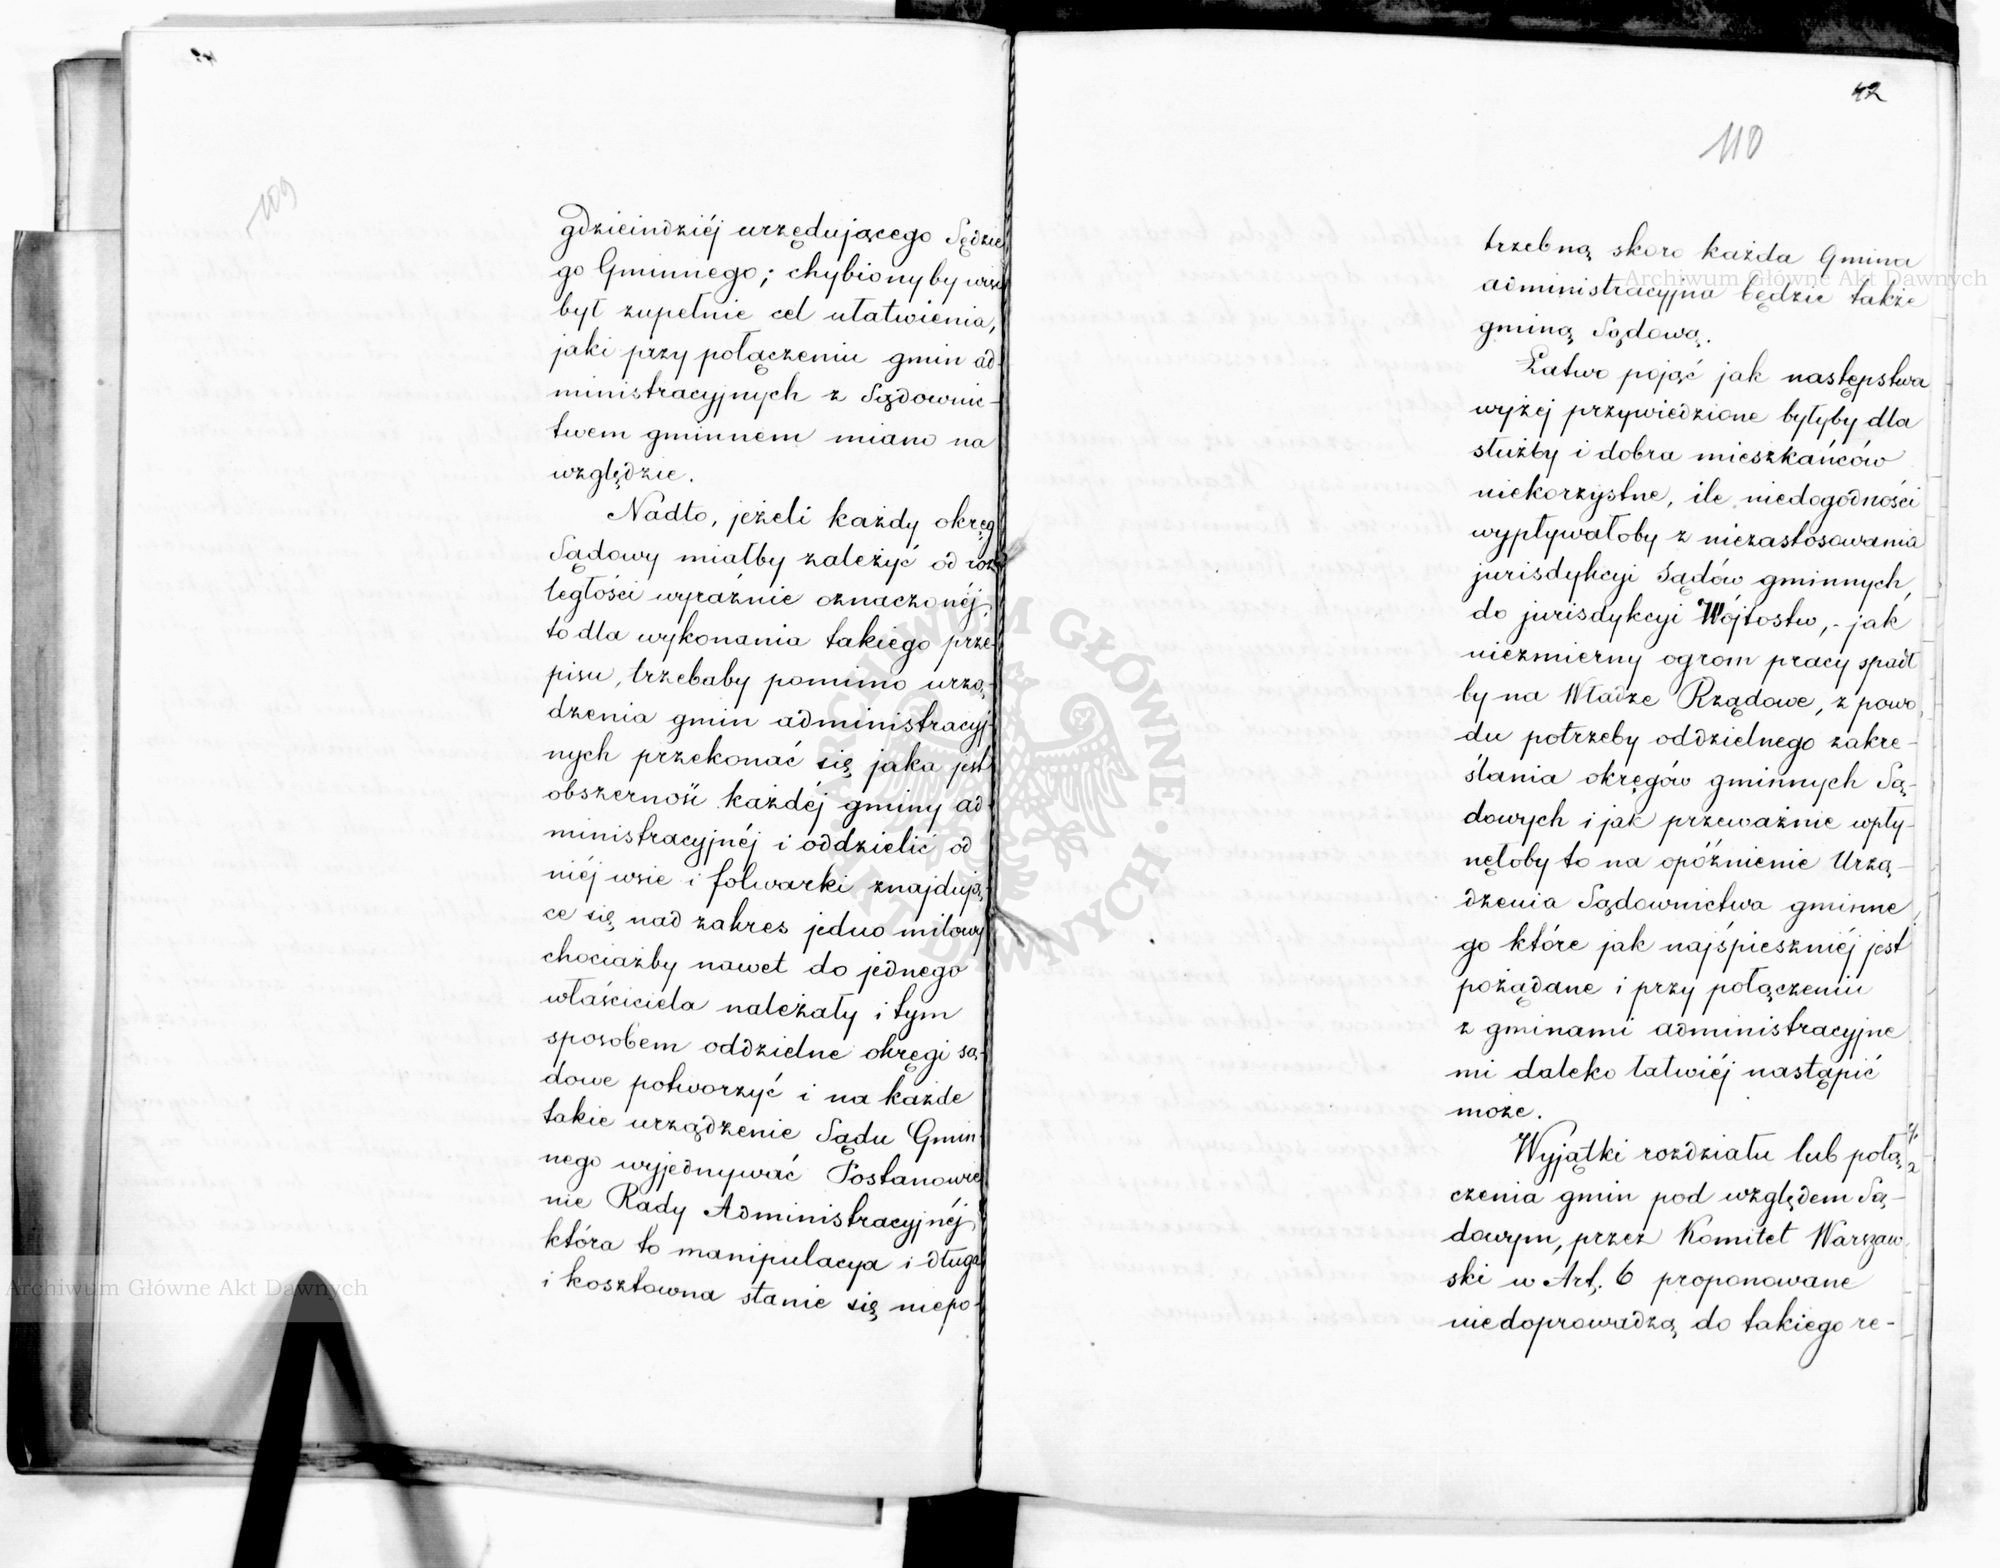 109
gdzieindziéj urzędującego Sędzie
go Gminnego; chybionyby więc
był zupełnie cel ułatwienia,
jaki przy połączeniu gmin ad-
ministracyjnych z Sądownic-
twem gminnem miano na
względzie.
Nadto, jeżeli każdy okręg
Sądowy miałby zależyć od roz-
ległości wyraźnie oznaczonéj,
to dla wykonania takiego prze-
pisu, trzebaby pomimo urzą-
dzenia gmin administracyj-
nych przekonać się jaka jest
obszerność każdéj gminy ad-
ministracyjnéj i oddzielić od
niéj wsie i folwarki znajdują-
ce się nad zakres jedno milowy
chociażby nawet do jednego
właściciela należały i tym
sposobem oddzielne okręgi są-
dowe potworzyć i na każde
takie urządzenie Sądu Gmin-
nego wyjednywać Postanowie
nie Rady Administracyjnéj,
która to manipulacya i długa
i kosztowna stanie się niepo-
42
110
trzebną skoro każda Gmina
administracyjna będzie także
gminą Sądową.
Łatwo pojąć jak następstwa
wyżej przywiedzione byłyby dla
służby i dobra mieszkańców
niekorzystne, ile niedogodności
wypływałoby z niezastosowania
jurisdykcyi Sądów gminnych,
do jurisdykcyi Wójtostw, - jak
niezmierny ogrom pracy spadł
by na Władze Rządowe, z powo
du potrzeby oddzielnego zakre-
ślania okręgów gminnych Są-
dowych i jak przeważnie wpły-
nęłoby to na opóźnienie Urzą-
dzenia Sądownictwa gminne
go które jak najśpieszniéj jest
pożądane i przy połączeniu
z gminami administracyjne
mi daleko łatwiéj nastąpić
może.
Wyjątki rozdziału lub połą
czenia gmin pod względem Są-
dowym, przez Komitet Warszaw
ski w Art. 6 proponowane
niedoprowadzą do takiego re-
Archiwum Główne Akt Dawnych
Archiwum Główne Akt Dawnych
ARCHIWUM GŁÓWNE · AKT DAWNYCH ·